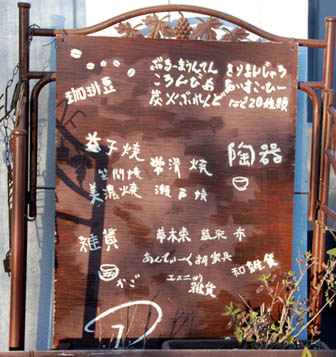 珈琲豆
ぶるーまうんてん きりまんじゃろ
ころんびあ あいすこーひー
炭火ぶれんど など20種類
益子焼 常滑焼 陶器
笠間焼
美濃焼 瀬戸焼
雑貨
草木染 藍染 布
あんてぃーく調家具
和雑貨
かご エスニック
雑貨